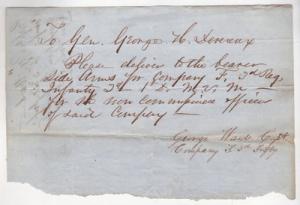 To Gen. George H. Devereux
Please deliver to the bearer
Side Arms for Company F. 3d Reg
Infantry M. V. M
for the non commissioned officers
of said Company
George
Company F 3d